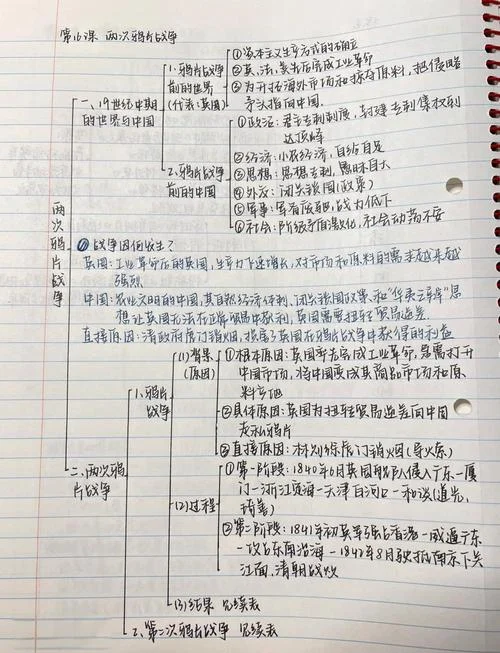 第16课 两次鸦片战争
两次鸦片战争
一、19世纪中期的世界与中国
1.鸦片战争前的世界(代表:英国)
①资本主义生产方式的确立
②英、法、美先后完成工业革命
③为开拓海外市场和掠夺原料,把侵略
矛头指向中国.
2.鸦片战争前的中国
①政治:君主专制制度,封建专制集权到
达顶峰
②经济:小农经济,自给自足
③思想:思想专制,愚昧自大
④外交:闭关锁国(政策)
⑤军事:军备废弛,战力低下
⑥社会:阶级矛盾激化,社会动荡不安
①战争因何发生?
英国:工业革命后的英国,生产力飞速增长,对市场和原料的需求越来越
强烈
中国:农业文明的中国,其自然经济体制、闭关锁国政策和“华夷之辨”思
想让英国无法在正常贸易中获利,英国需要扭转贸易逆差
直接原因:清政府虎门销烟,损害了英国在鸦片战争中获得的利益
二、两次鸦片战争
1.鸦片战争
(1)背景(原因)
①根本原因:英国率先完成工业革命,急需打开
中国市场,将中国变成其商品市场和原
料产地
②具体原因:英国为扭转贸易逆差向中国
走私鸦片
③直接原因:林则徐虎门销烟(导火索)
(2)过程
①第一阶段:1840年6月英国舰队侵入广东—厦
门—浙江定海—天津白河口—和谈(道光,
琦善)
②第二阶段:1841年初英军强占香港—威逼广东
—攻占东南沿海—1842年8月驶抵南京下关
江面,清朝战败
(3)结果 见续表
2、第二次鸦片战争 见续表